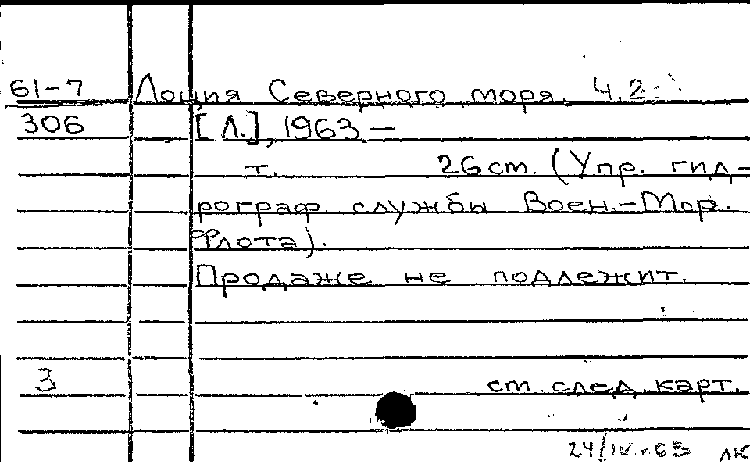 61-7 Лоция Северного моря. Ч.2.
306 [Л.], 1963 —
т. 26 см. (Упр. гид-
рограф службы Воен.-Мор.
Флота).
Продаже не подлежит.
3 см. след. карт.
24/IV-63 ЛК